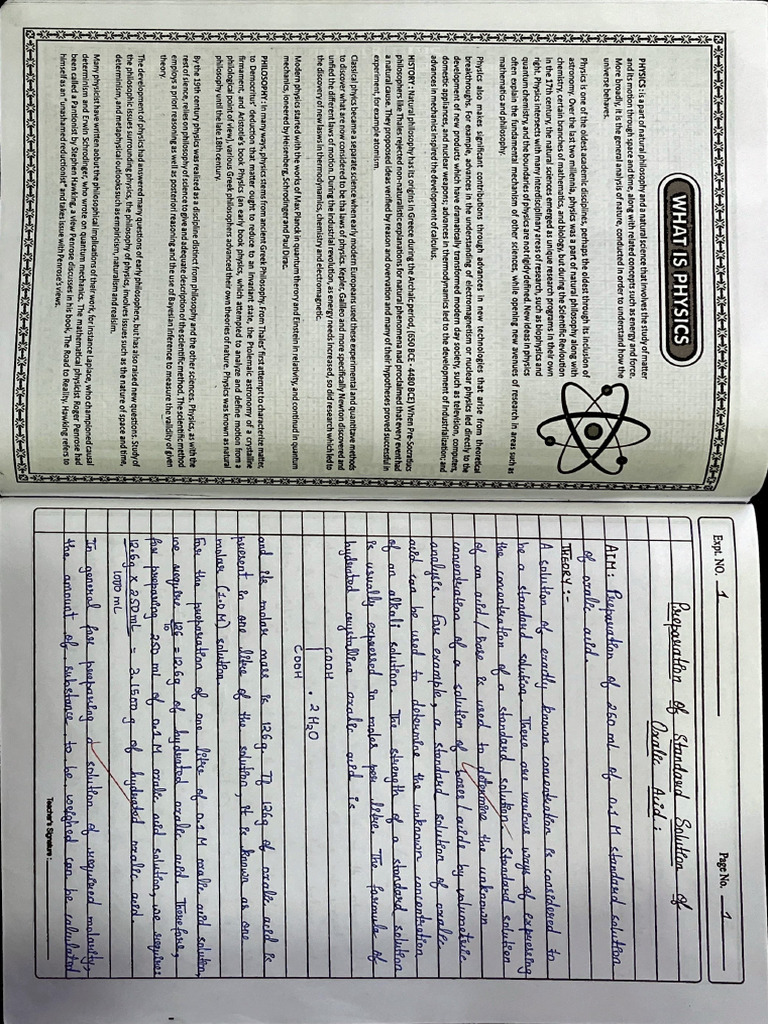 WHAT IS PHYSICS
PHYSICS is a part of natural philosophy and a natural science that involves the study of matter
and its motion through space and time, along with related concepts such as energy and force.
More broadly, it is the general analysis of nature, conducted in order to understand how the
universe behaves.
Physics is one of the oldest academic disciplines, perhaps the oldest through, its inclusion of
astronomy. Over the last two millennia, physics was a part of natural philosophy along with
chemistry, certain branches of mathematics, and biology, but during the Scientific Revloution
in the 17th century, the natural sciences emerged as unique research programs in their own
right. Physics intersects with many interdisciplinary areas of research, such as biophysics and
quantum chemistry, and the boundaries of physics are not rigidly defined. New ideas in physics
often explain the fundamental mechanism of other sciences, while opening new avenues of research in areas such as
mathematics and philosophy.
Physics also makes significant contributions through advances in new technologies that arise from theoretical
breakthroughs. For example, advances in the understanding of electromagnetism or nuclear physics led directly to the
development of new products which have dramatically transformed modern day society, such as television, computers,
domestic appliances, and nuclear weapons; advances in thermodynamics led to the development of industrialization; and
advances in mechanics inspired the development of calculus.
HISTORY : Natural philosophy has its origins in Greece during the Archaic period, (650 BCE - 4480 BCE) When Pre-Socratics
philosophers like Thales rejected non-naturalistic explanations for natural phenomena nad proclaimed that every event had
a natural cause. They proposed ideas verified by reason and overvation and many of their hypotheses proved successful in
experiment, for example atomism.
Classical physics became a separate science when early modern Europeans used these experimental and quantitave methods
to discover what are now considered to be the laws of physics. Kepler, Galileo and more specifically Newton discovered and
unified the different laws of motion. During the industrial revolution, as energy needs increased, so did research which led to
the discovery of new lasses in thermodynamics, chemistry and electromagnetic.
Modern physics started with the works of Max Planck in quantum therory and Einstein in relativity, and continut in quantum
mechanics, ionered by Heisenberg, Schrodinger and Paul Dirac.
PHILOSOPHY : In many ways, physics stems from ancient Greek Philosophy. From Thales' first attempt to characterize matter,
to Democritus' deduction that matter ought to reduce to an Invariant state, the Ptolemaic astronomy of a crystalline
firmament, and Aristotle's book Physics (an early book physics, which attempted to analyze and define motion from a
philological point of view), various Greek philosophers advanced their own theories of nature. Physics was known as natural
philosophy until the late 18th century.
By the 19th century physics was realized as a discipline distinct from philosophy and the other sciences. Physics, as with the
rest of sience, relies on philosophy of science to give and adequate description of the scientific method. The scientific method
employs a priori reasoning as well as posteriori reasoning and the use of Bayesian inference to measure the validity of given
theory.
The development of physics had answered many questions of early philosophers, but has also raised new questions. Study of
the philosophic issues surrounding physics, the philosophy of physics, involves issues such as the nature of space and time,
determinism, and metaphysical outlooks such as empiricism, naturalism and realism.
Many physicist have written sobut the philosophical implications of their work, for instance Laplace, who championed causal
determinism and Erwin Schrodinger, who wrote on quantum mechanics. The mathematical physicist Roger Penrose had
been called a Pantionist by Stephen Hawking, a view Penrose discusses in his book, The Road to Reality. Hawking refers to
himself as an "unashamed reductionist" and takes issue with Penrose's views.
Expt. NO. 1 Page No. 1
Preparation of Standard Solution of
Oxalic Acid:
AIM: Preparation of 250 ml of 0.1 M standard solution
of oxalic acid.
THEORY:-
A solution of exactly known concentration is considered to
be a standard solution. There are various ways of expressing
the concentration of a standard solution. Standard solution
of an acid/base is used to determine the unknown
concentration of a solution of bases/acids by volumetric
analysis. For example, a standard solution of oxalic
acid can be used to determine the unknown concentration
of an alkali solution. The strength of a standard solution
is usually expressed in moles per litre. The formula of
hydrated crystalline oxalic acid is
COOH
| . 2H₂O
COOH
and its molar mass is 126g. If 126g of oxalic acid is
present in one litre of the solution, it is known as one
molar (1.0 M) solution.
For the preparation of one litre of 0.1 M oxalic acid solution,
we require 126/10 = 12.6g of hydrated oxalic acid. Therefore,
for preparing 250 ml of 0.1 M oxalic acid solution, we require:
12.6g x 250mL / 1000 mL = 3.1500 g of hydrated oxalic acid.
In general for preparing a solution of required molarity,
the amount of substance to be weighed can be calculated
Teacher's Signature :